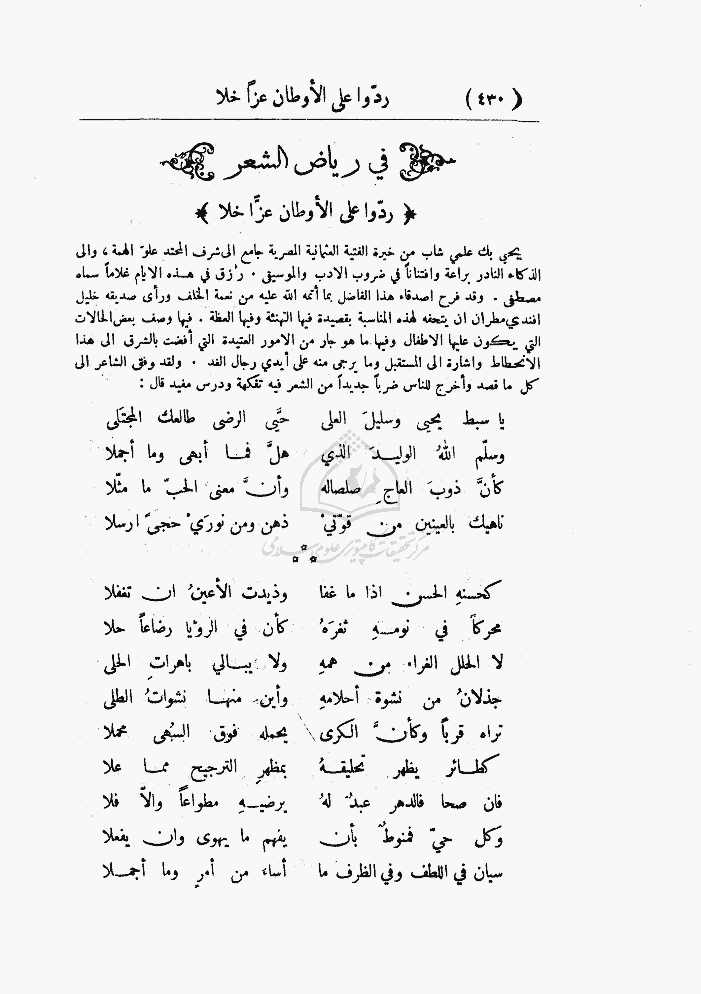 (٤٣٠) ردّوا على الأوطان عزاً خلا
في رياض الشعر
﴿ ردّوا على الأوطان عزًّا خلا ﴾
يحيى بك علمي شاب من خيرة الفتية العثمانية المصرية جامع الى شرف المحتد علوّ الهمة ، والى
الذكاء النادر براعة وافتناناً في ضروب الادب والموسيقى . رُزق في هذه الايام غلاماً سماه
مصطفى . وقد فرح اصدقاء هذا الفاضل بما أتمه الله عليه من نعمة الخلف ورأى صديقه خليل
افندي مطران ان يتحفه لهذه المناسبة بقصيدة فيها التهنئة وفيها العظة . فيها وصف بعض الحالات
التي يكون عليها الاطفال وفيها ما هو جار من الامور العتيدة التي أفضت بالشرق الى هذا
الانحطاط واشارة الى المستقبل وما يرجى منه على أيدي رجال الغد . ولقد وفق الشاعر الى
كل ما قصد وأخرج للناس ضرباً جديداً من الشعر فيه تفكهة ودرس مفيد قال :
يا سبط يحيى وسليلَ العلى حيَّى الرضى طالعك المجتلى
وسلّم اللهُ الوليدَ الذي هلَّ فما أبهى وما أجملا
كأنَّ ذوبَ العاجِ صلصاله وأنَّ معنى الحبّ ما مثّلا
ناهيك بالعينين من قوّتيْ ذهن ومن نوريْ حجىً ارسلا
* * *
كحسنهِ الحسن اذا ما غفا وذيدت الأعينُ ان تغفلا
محركاً في نومهِ ثغرَهُ كأن في الرؤيا رضاعاً حلا
لا الحلل الغراء من همهِ ولا يبالي باهرات الحلى
جذلانُ من نشوة أحلامهِ وأين منها نشواتُ الطلى
تراه قرباً وكأنَّ الكرى يحمله فوق السُهى محملا
كطائر يظهر تحليقهُ بمظهرِ الترجيح مما علا
فان صحا فالدهر عبدٌ لهُ يرضيهِ مطواعاً والاّ فلا
وكل حيّ فمنوطٌ بأن يفهم ما يهوى وان يفعلا
سيان في اللطف وفي الظرف ما أساءَ من أمرٍ وما أجملا
مركز تحقيقات كامپيوترى علوم اسلامى